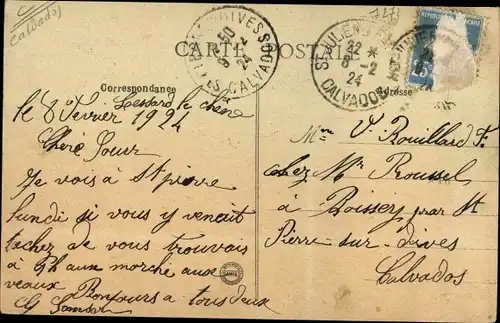 Calvados
CARTE POSTALE
Correspondance
Adresse
ST JULIEN
22 *
8 -2
24
CALVADOS
DIVES
50
-2
24
CALVADOS
REPUBLIQUE FRANÇAISE
25
Lessard le chêne
le 8 fevrier 1924
Chere Soeur
Je vois à St pierre
lundi si vous y venait
tachez de vous trouvais
à 9h aux morché aux
veaux Bonjours a tous deux
Mme V. Rouillard F.
chez Mr Proussel
à Boissey par St
Pierre-sur-Dives
Calvados